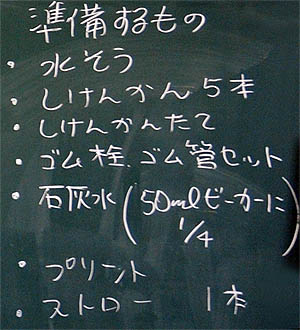 準備するもの
・水そう
・しけんかん5本
・しけんかんたて
・ゴム栓、ゴム管セット
・石灰水(50mlビーカーに
1/4)
・プリント
・ストロー 1本